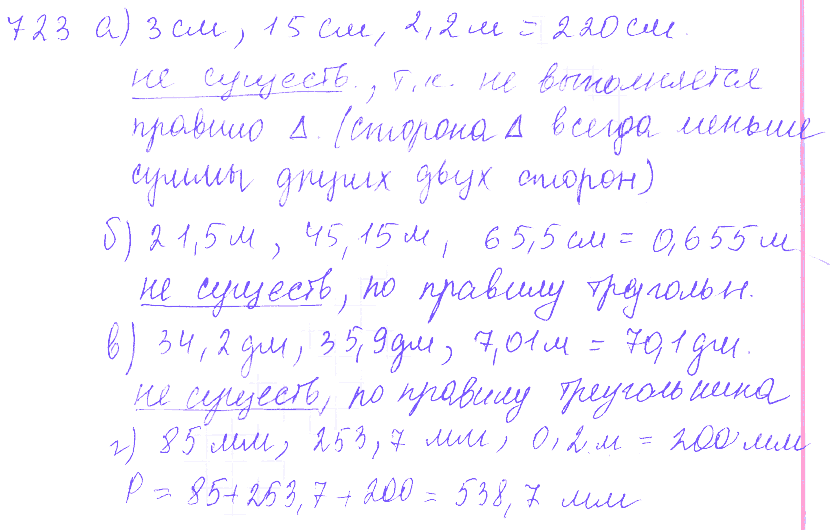 723 а) 3 см, 15 см, 2,2 м = 220 см.
не существ., т.к. не выполняется
правило Δ. (сторона Δ всегда меньше
суммы других двух сторон)
б) 21,5 м, 45,15 м, 65,5 см = 0,655 м
не существ, по правилу треугольн.
в) 34,2 дм, 35,9 дм, 7,01 м = 70,1 дм.
не существ, по правилу треугольника
г) 85 мм, 253,7 мм, 0,2 м = 200 мм
P = 85+253,7+200 = 538,7 мм